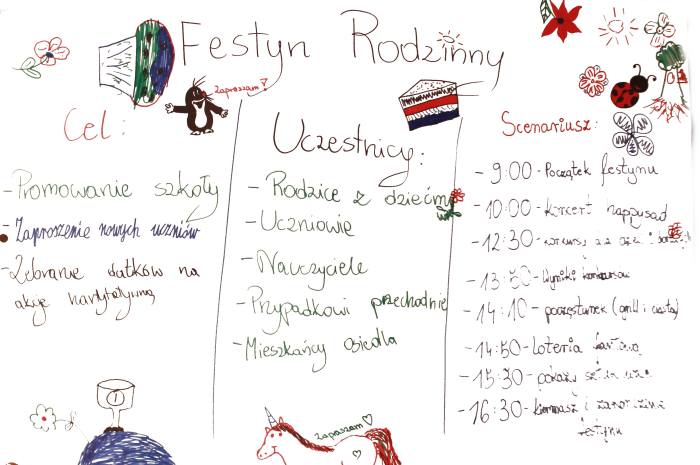 Festyn Rodzinny
Zapraszam!
Cel:
-Promowanie szkoły
-Zaproszenie nowych uczniów
-Zebranie datków na
akcje
Uczestnicy:
- Rodzice z dziećmi
- Uczniowie
- Nauczyciele
-Przypadkowi przechodnie
-Mieszkańcy Osiedla
Scenariusz:
- 9:00 - Początek festynu
- 10:00 - koncert
- 12:30 -
- 13:50 - Wyniki konkursów
- 14:10 - poczęstunek (grill i ciasta)
- 14:50 - Loteria fantowa
- 15:30 - pokazy
- 16:30 - kiermasz i
festynu
1
Zapraszam